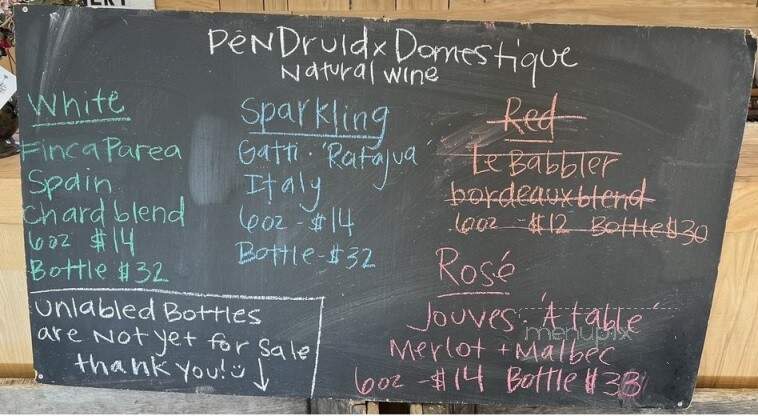 PENDruid x Domestique
Natural wine
White
Finca Parea
Spain
Chard blend
6oz $14
Bottle $32
Sparkling
Gatti · 'Ratajua'
Italy
6oz - $14
Bottle - $32
Red
Le Babbler
bordeaux blend
6oz - $12 Bottle $30
Rosé
Jouves 'A table'
Merlot + Malbec
6oz - $14 Bottle $33
unlabled Bottles
are Not yet for Sale
thank you!
menupix